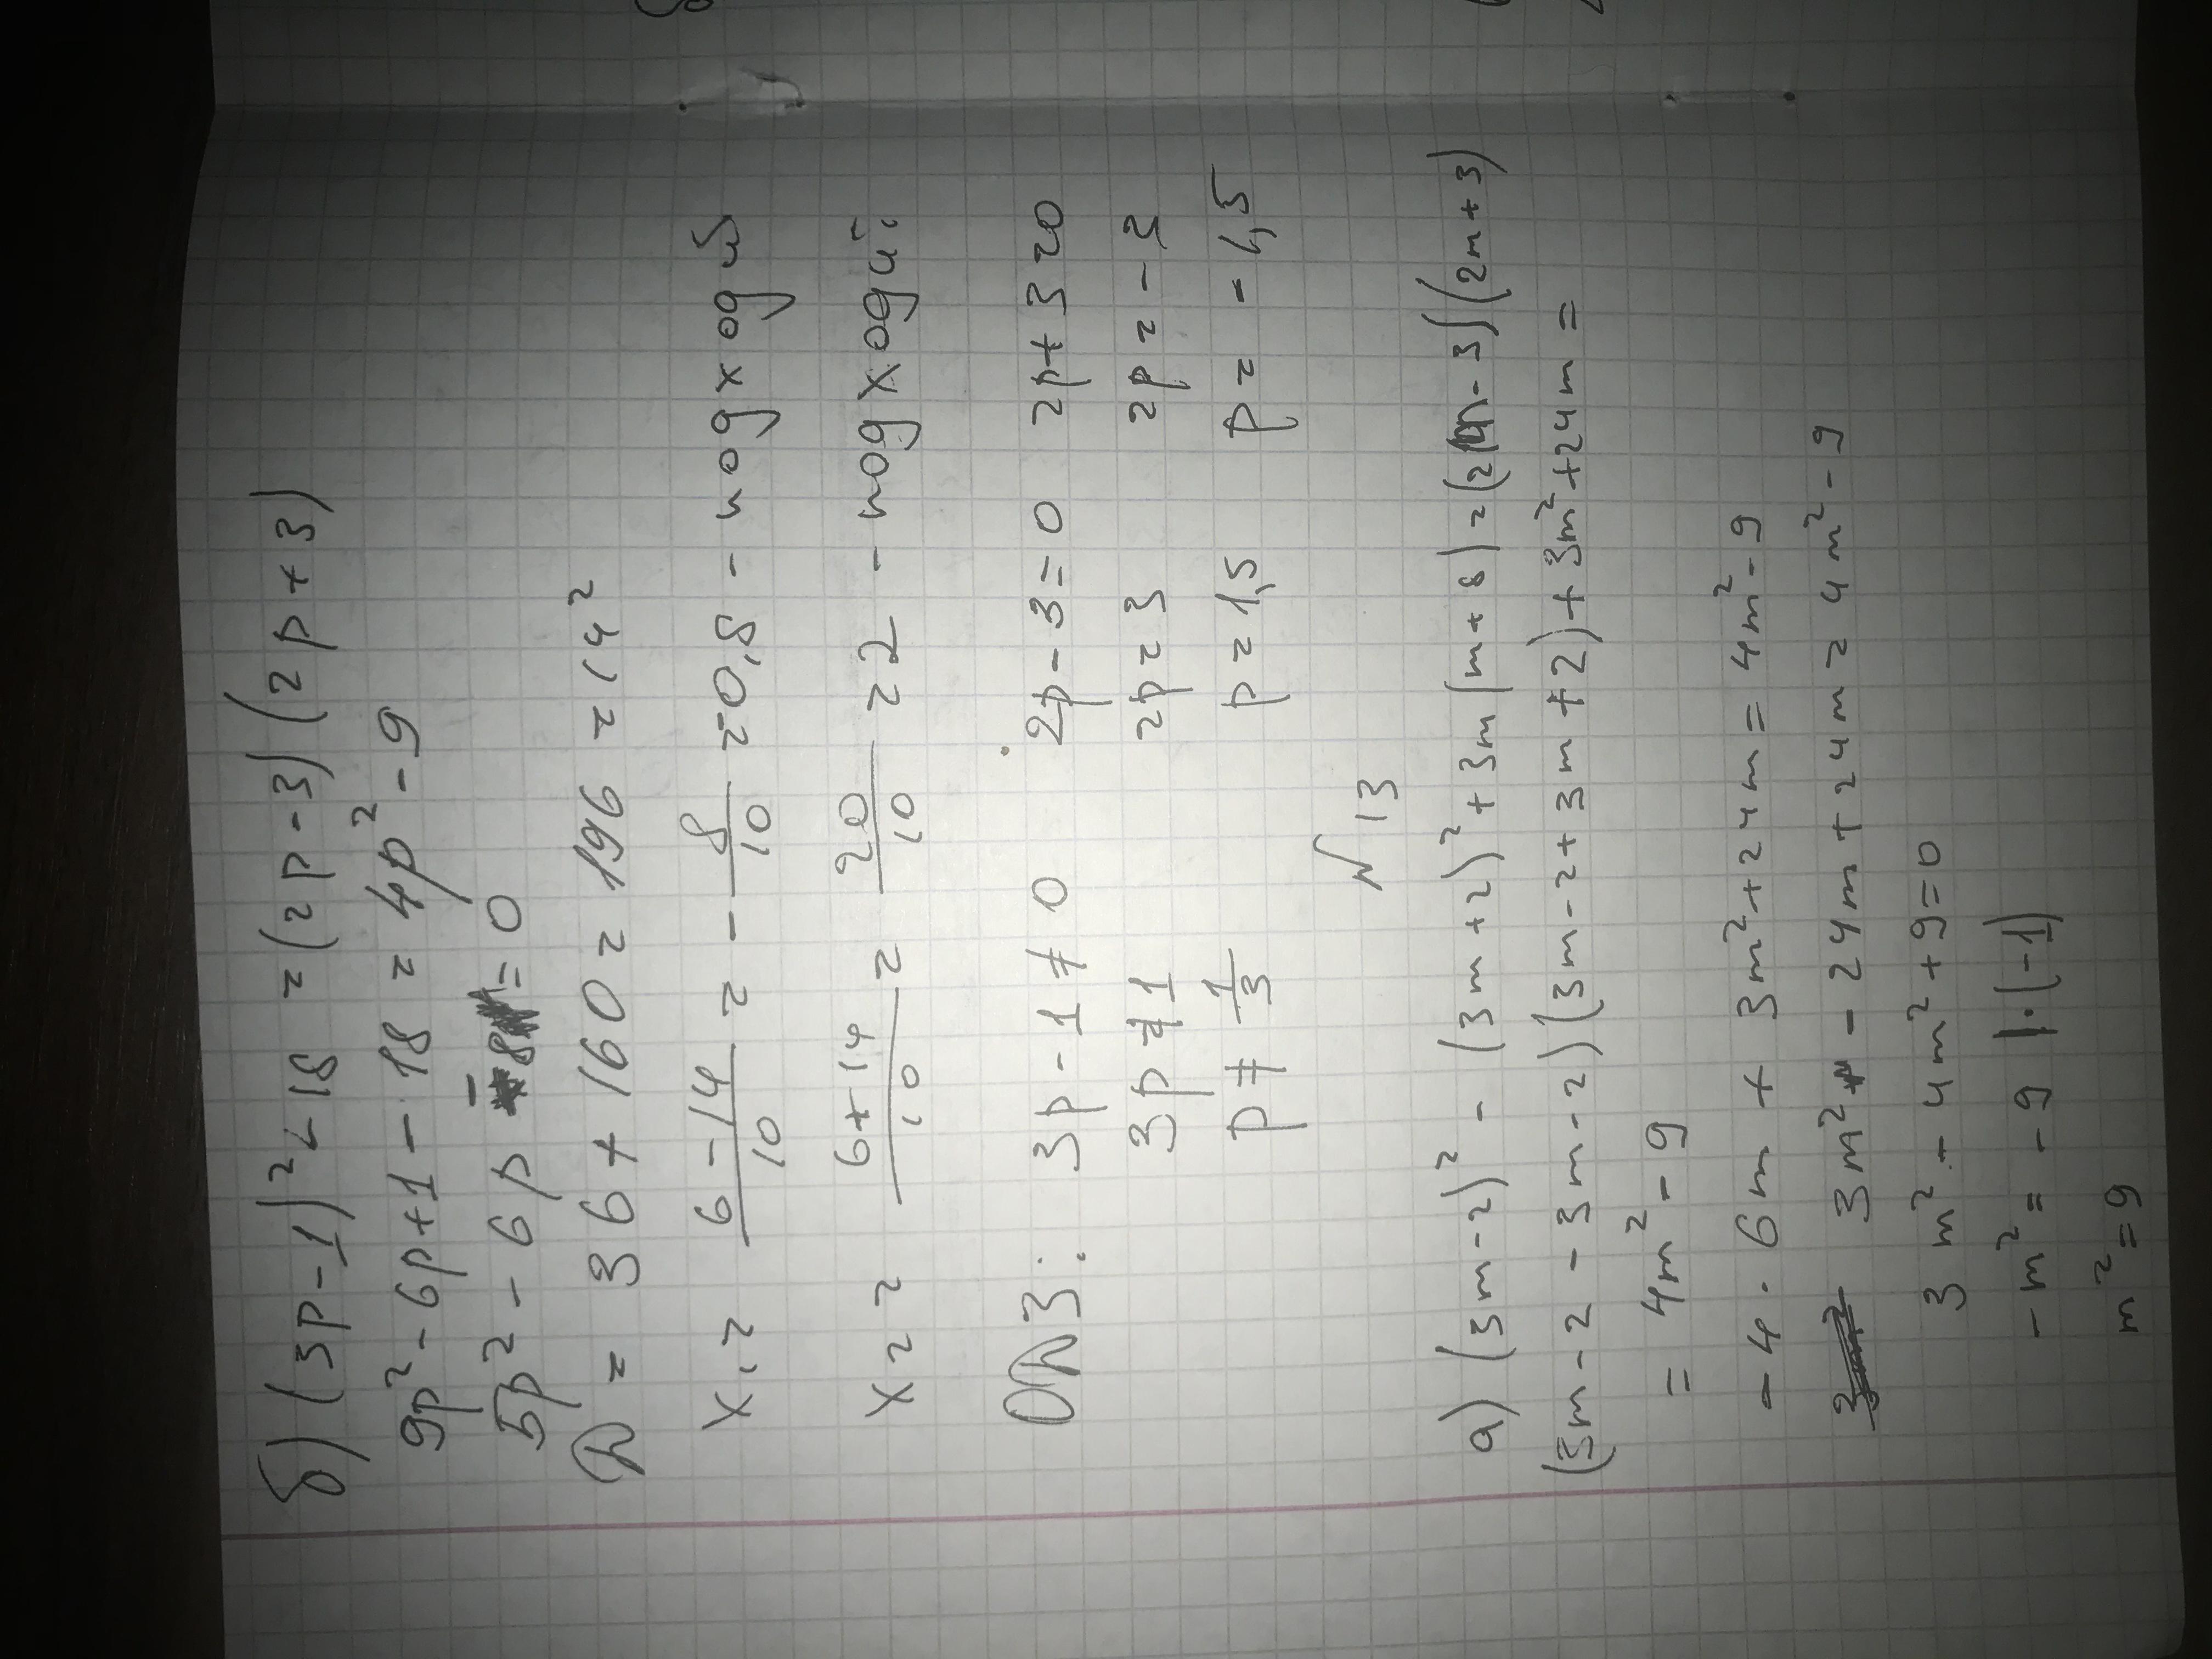 б) (3p-1)² - 18 = (2p-3)(2p+3)
9p² - 6p + 1 - 18 = 4p² - 9
5p² - 6p - 8 = 0
D = 36 + 160 = 196 = 14²
x₁ = (6-14)/10 = -8/10 = 0,8 - подходит
x₂ = (6+14)/10 = 20/10 = 2 - подходит.
ОДЗ: 3p - 1 ≠ 0 2p - 3 = 0 2p + 3 = 0
3p ≠ 1 2p = 3 2p = -3
p ≠ 1/3 p = 1,5 p = -1,5
№13
а) (3m-2)² - (3m+2)² + 3m(m+8) = (2m-3)(2m+3)
(3m-2-3m-2)(3m-2+3m+2) + 3m² + 24m =
= 4m² - 9
-4 · 6m + 3m² + 24m = 4m² - 9
3m² - 24m + 24m = 4m² - 9
3m² - 4m² + 9 = 0
-m² = -9 |·(-1)
m² = 9